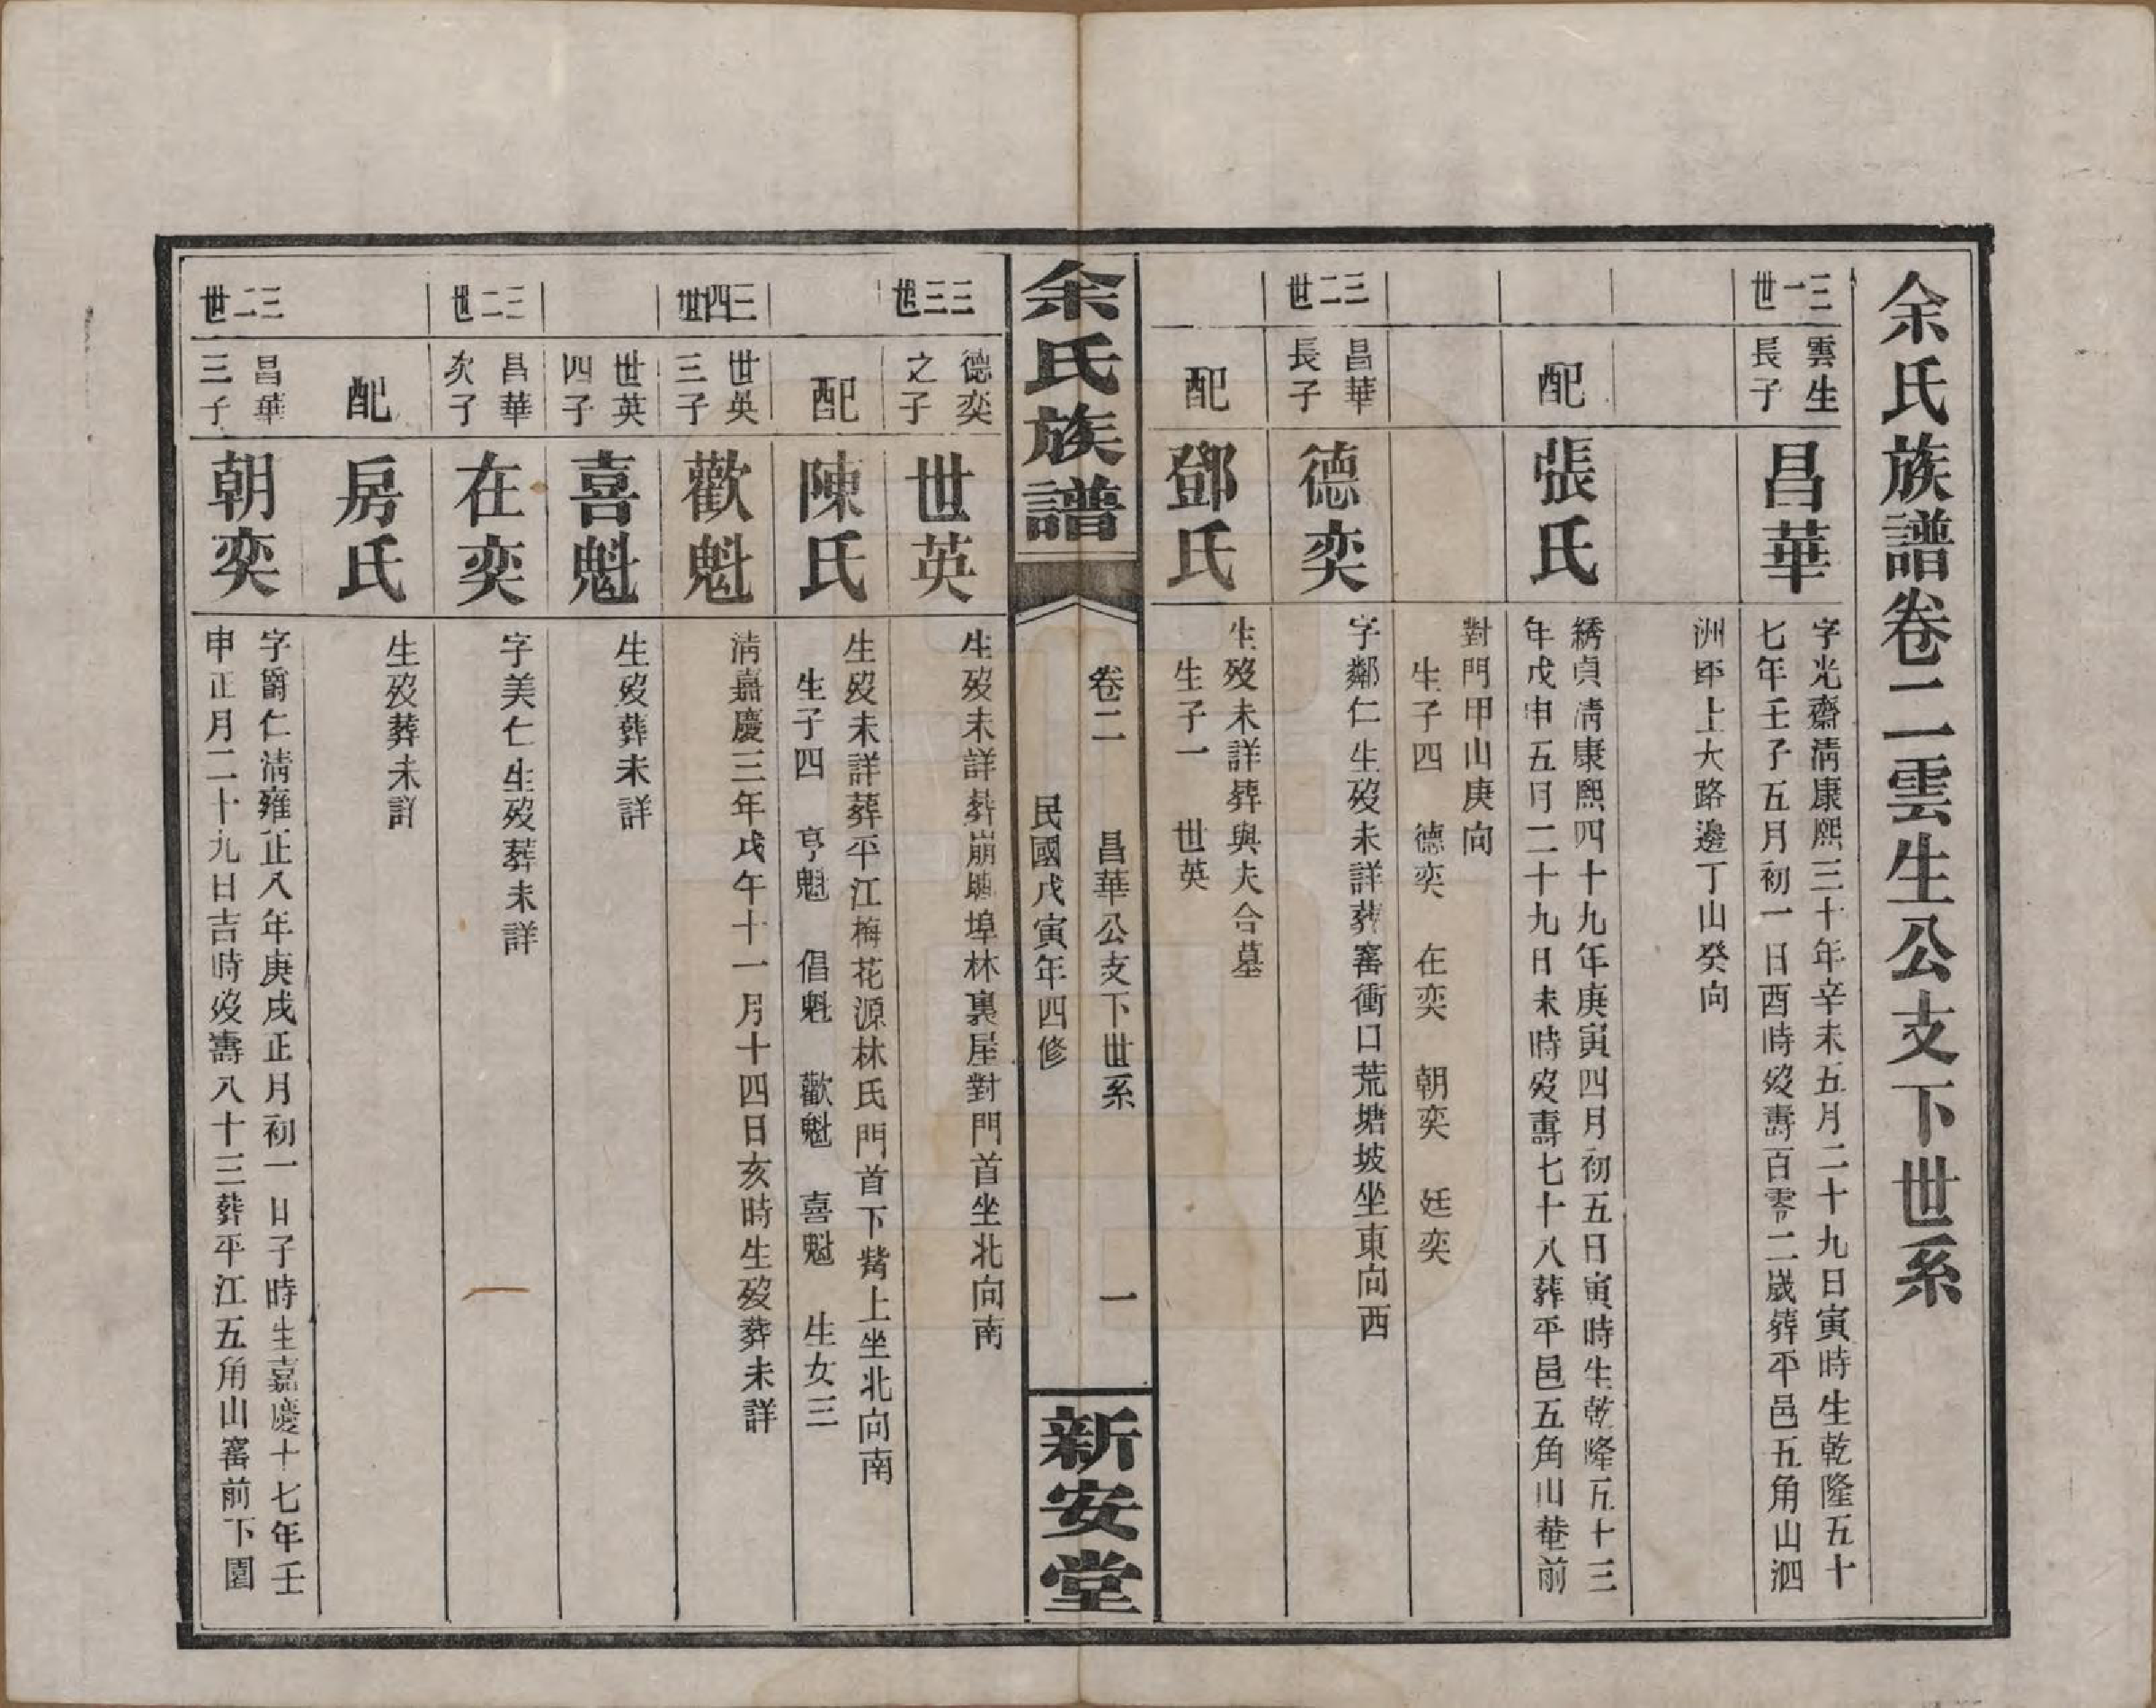 余氏族譜卷二雲生公支下世系
三一世
雲生
長子
昌華
字光齋清康熙三十年辛未五月二十九日寅時生乾隆五十
七年壬子五月初一日酉時歿壽百零二歲葬平邑五角山泗
洲坪上大路邊丁山癸向
配
張氏
綉貞清康熙四十九年庚寅四月初五日寅時生乾隆五十三
年戊申五月二十九日未時歿壽七十八葬平邑五角山菴前
對門甲山庚向
生子四 德奕 在奕 朝奕 廷奕
三二世
昌華
長子
德奕
字鄰仁生歿未詳葬窰衝口荒塘坡坐東向西
配
鄧氏
生歿未詳葬與夫合墓
生子一 世英
余氏族譜
卷二 昌華公支下世系 一
民國戊寅年四修
新安堂
三三世
德奕
之子
世英
生歿未詳葬崩墈埠林裏屋對門首坐北向南
配
陳氏
生歿未詳葬平江梅花源林氏門首下塝上坐北向南
生子四 亨魁 倡魁 歡魁 喜魁 生女三
三四世
世英
三子
歡魁
清嘉慶三年戊午十一月十四日亥時生歿葬未詳
世英
四子
喜魁
生歿葬未詳
三二世
昌華
次子
在奕
字美仁生歿葬未詳
配
房氏
生歿葬未詳
三二世
昌華
三子
朝奕
字爵仁清雍正八年庚戌正月初一日子時生嘉慶十七年壬
申正月二十九日吉時歿壽八十三葬平江五角山窰前下園